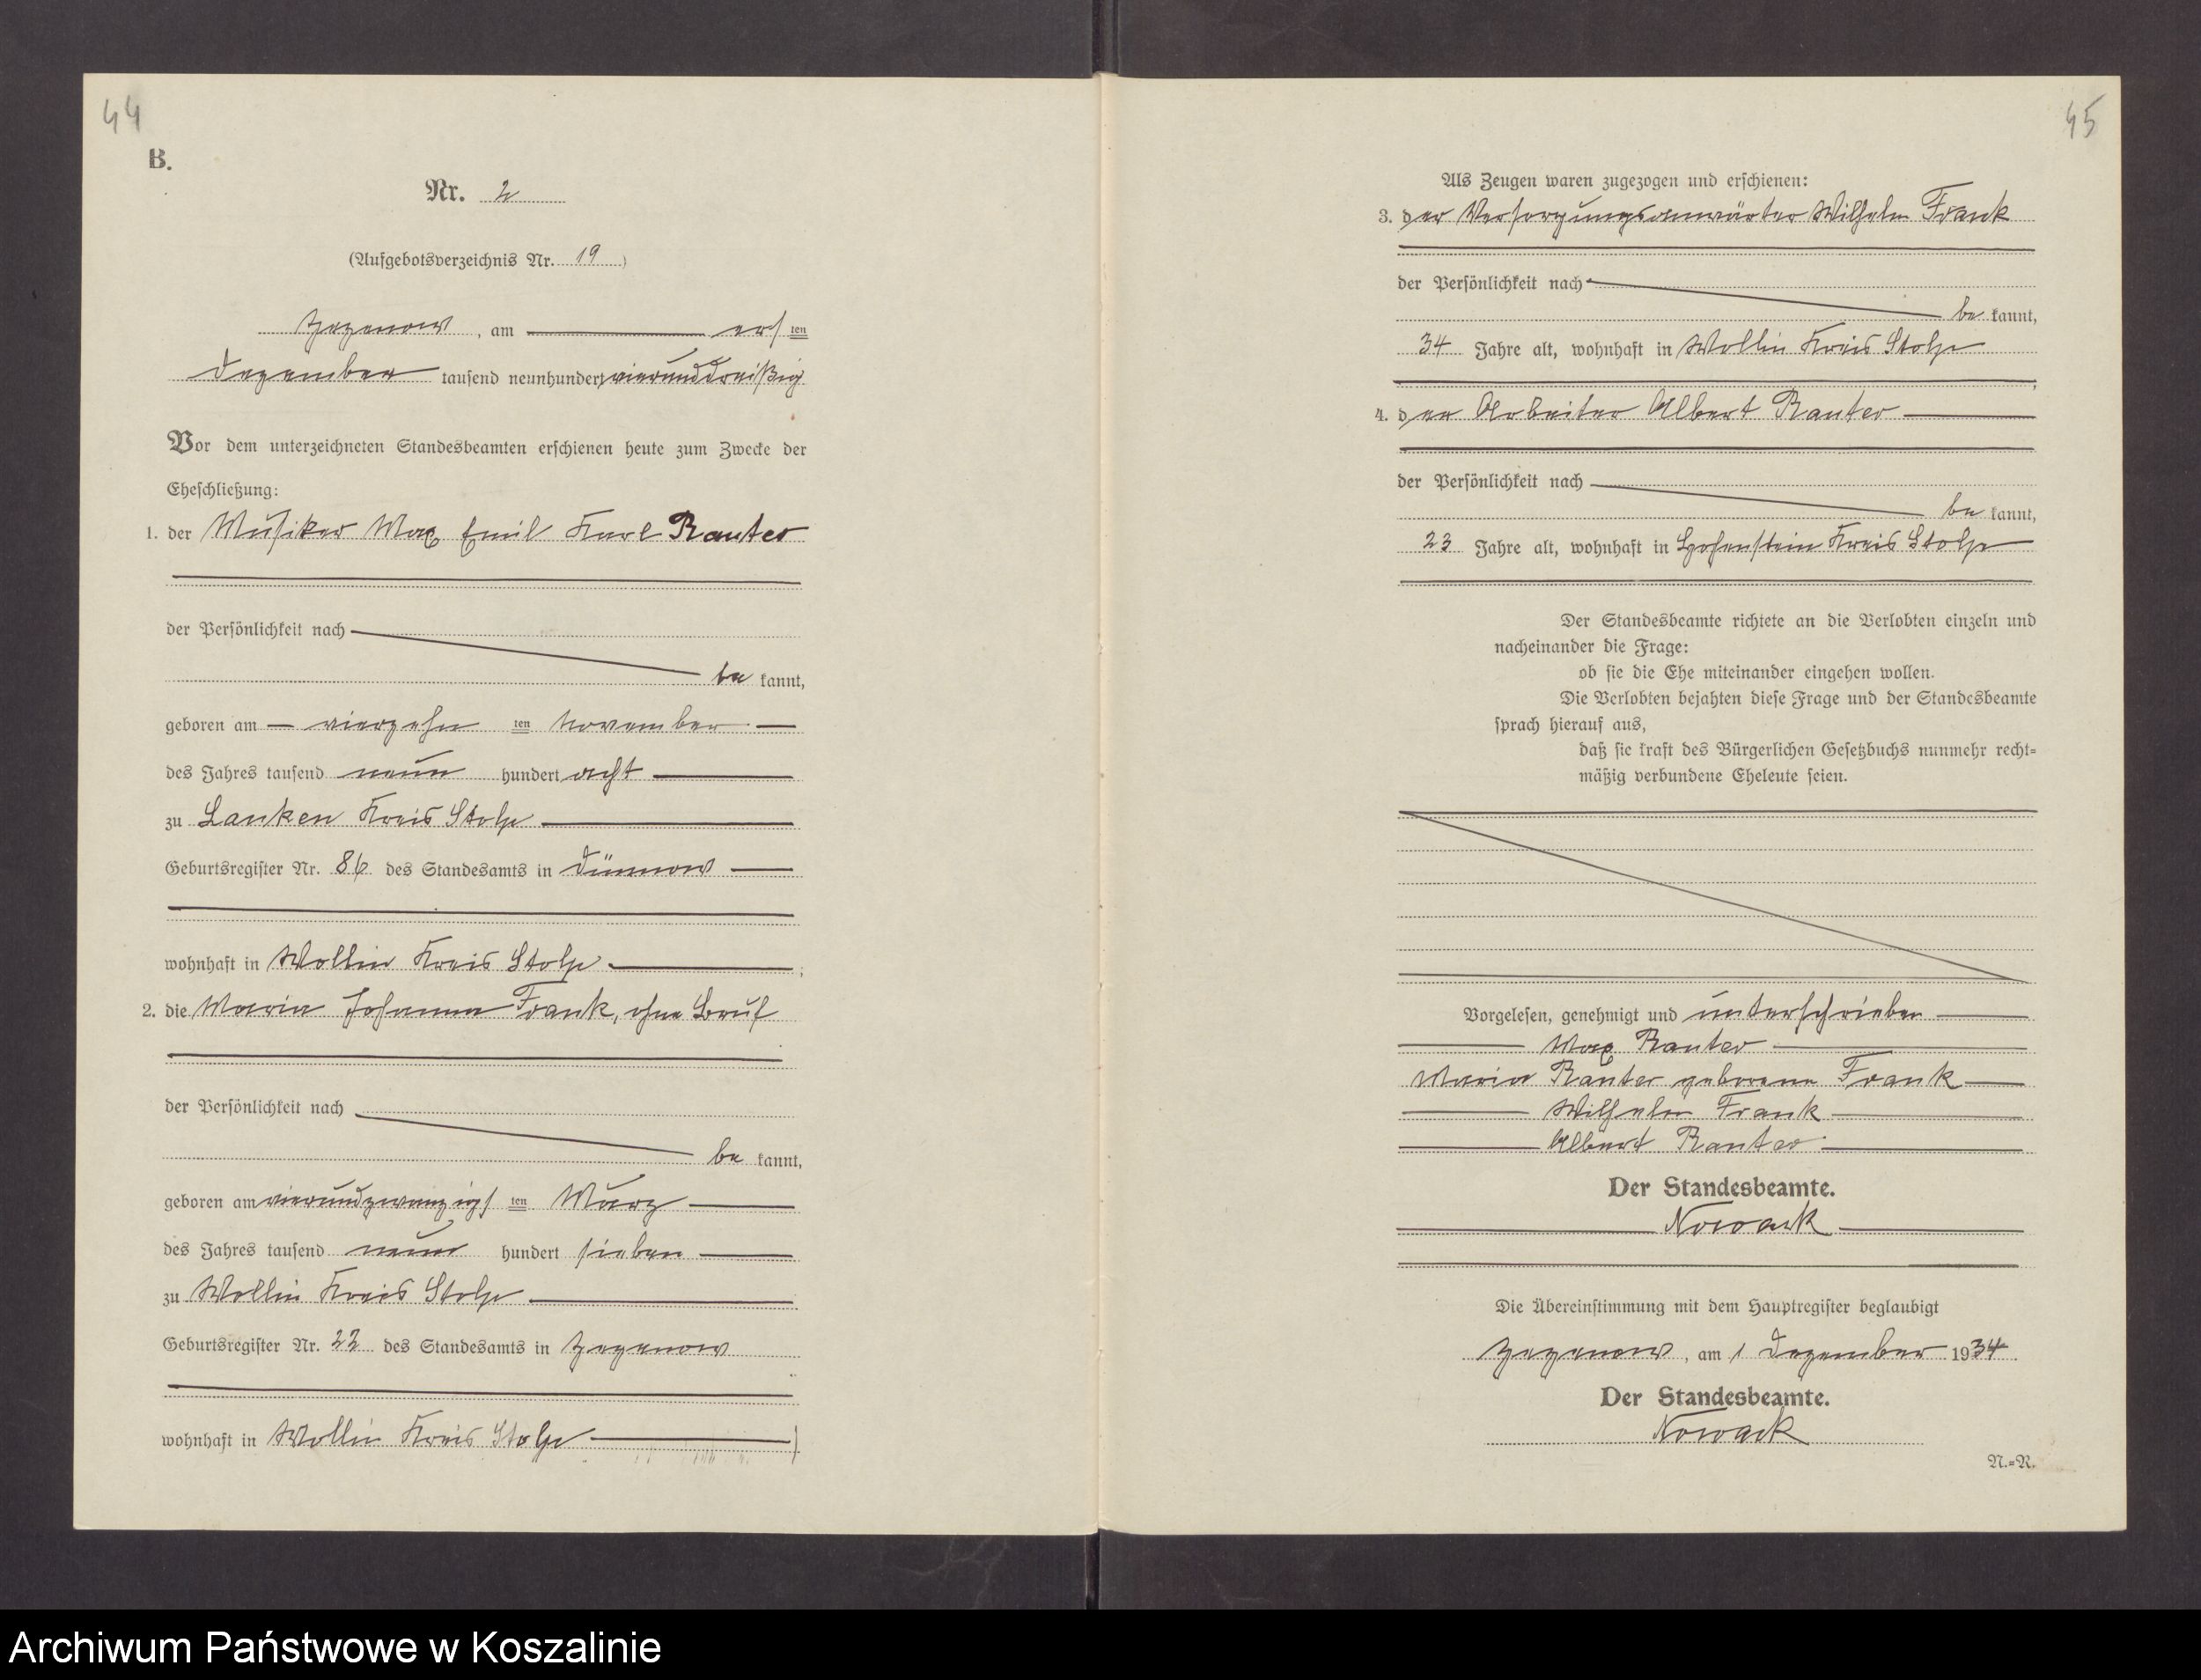 44
B.
Nr. 2
(Aufgebotsverzeichnis Nr. 19)
Zezenow, am ersten
Dezember tausend neunhundert vierunddreißig
Vor dem unterzeichneten Standesbeamten erschienen heute zum Zwecke der
Eheschließung:
1. der Musiker Max Emil Karl Rauter
der Persönlichkeit nach
be kannt,
geboren am vierzehn ten November
des Jahres tausend neun hundert acht
zu Lanken Kreis Stolp
Geburtsregister Nr. 86 des Standesamts in Dünnow
wohnhaft in Wollin Kreis Stolp;
2. die Maria Johanna Frank, ohne Beruf
der Persönlichkeit nach
be kannt,
geboren am vierundzwanzigs ten März
des Jahres tausend neun hundert sieben
zu Wollin Kreis Stolp
Geburtsregister Nr. 22 des Standesamts in Zezenow
wohnhaft in Wollin Kreis Stolp
45
Als Zeugen waren zugezogen und erschienen:
3. der Versorgungsanwärter Wilhelm Frank
der Persönlichkeit nach
be kannt,
34 Jahre alt, wohnhaft in Wollin Kreis Stolp
;
4. der Arbeiter Albert Rauter
der Persönlichkeit nach
be kannt,
23 Jahre alt, wohnhaft in Hohenstein Kreis Stolp
Der Standesbeamte richtete an die Verlobten einzeln und
nacheinander die Frage:
ob sie die Ehe miteinander eingehen wollen.
Die Verlobten bejahten diese Frage und der Standesbeamte
sprach hierauf aus,
daß sie kraft des Bürgerlichen Gesetzbuchs nunmehr recht=
mäßig verbundene Eheleute seien.
Vorgelesen, genehmigt und unterschrieben
Max Rauter
Maria Rauter geborene Frank
Wilhelm Frank
Albert Rauter
Der Standesbeamte.
Nowack
Die Übereinstimmung mit dem Hauptregister beglaubigt
Zezenow, am 1 Dezember 1934
Der Standesbeamte.
Nowack
N.=R.
Archiwum Państwowe w Koszalinie